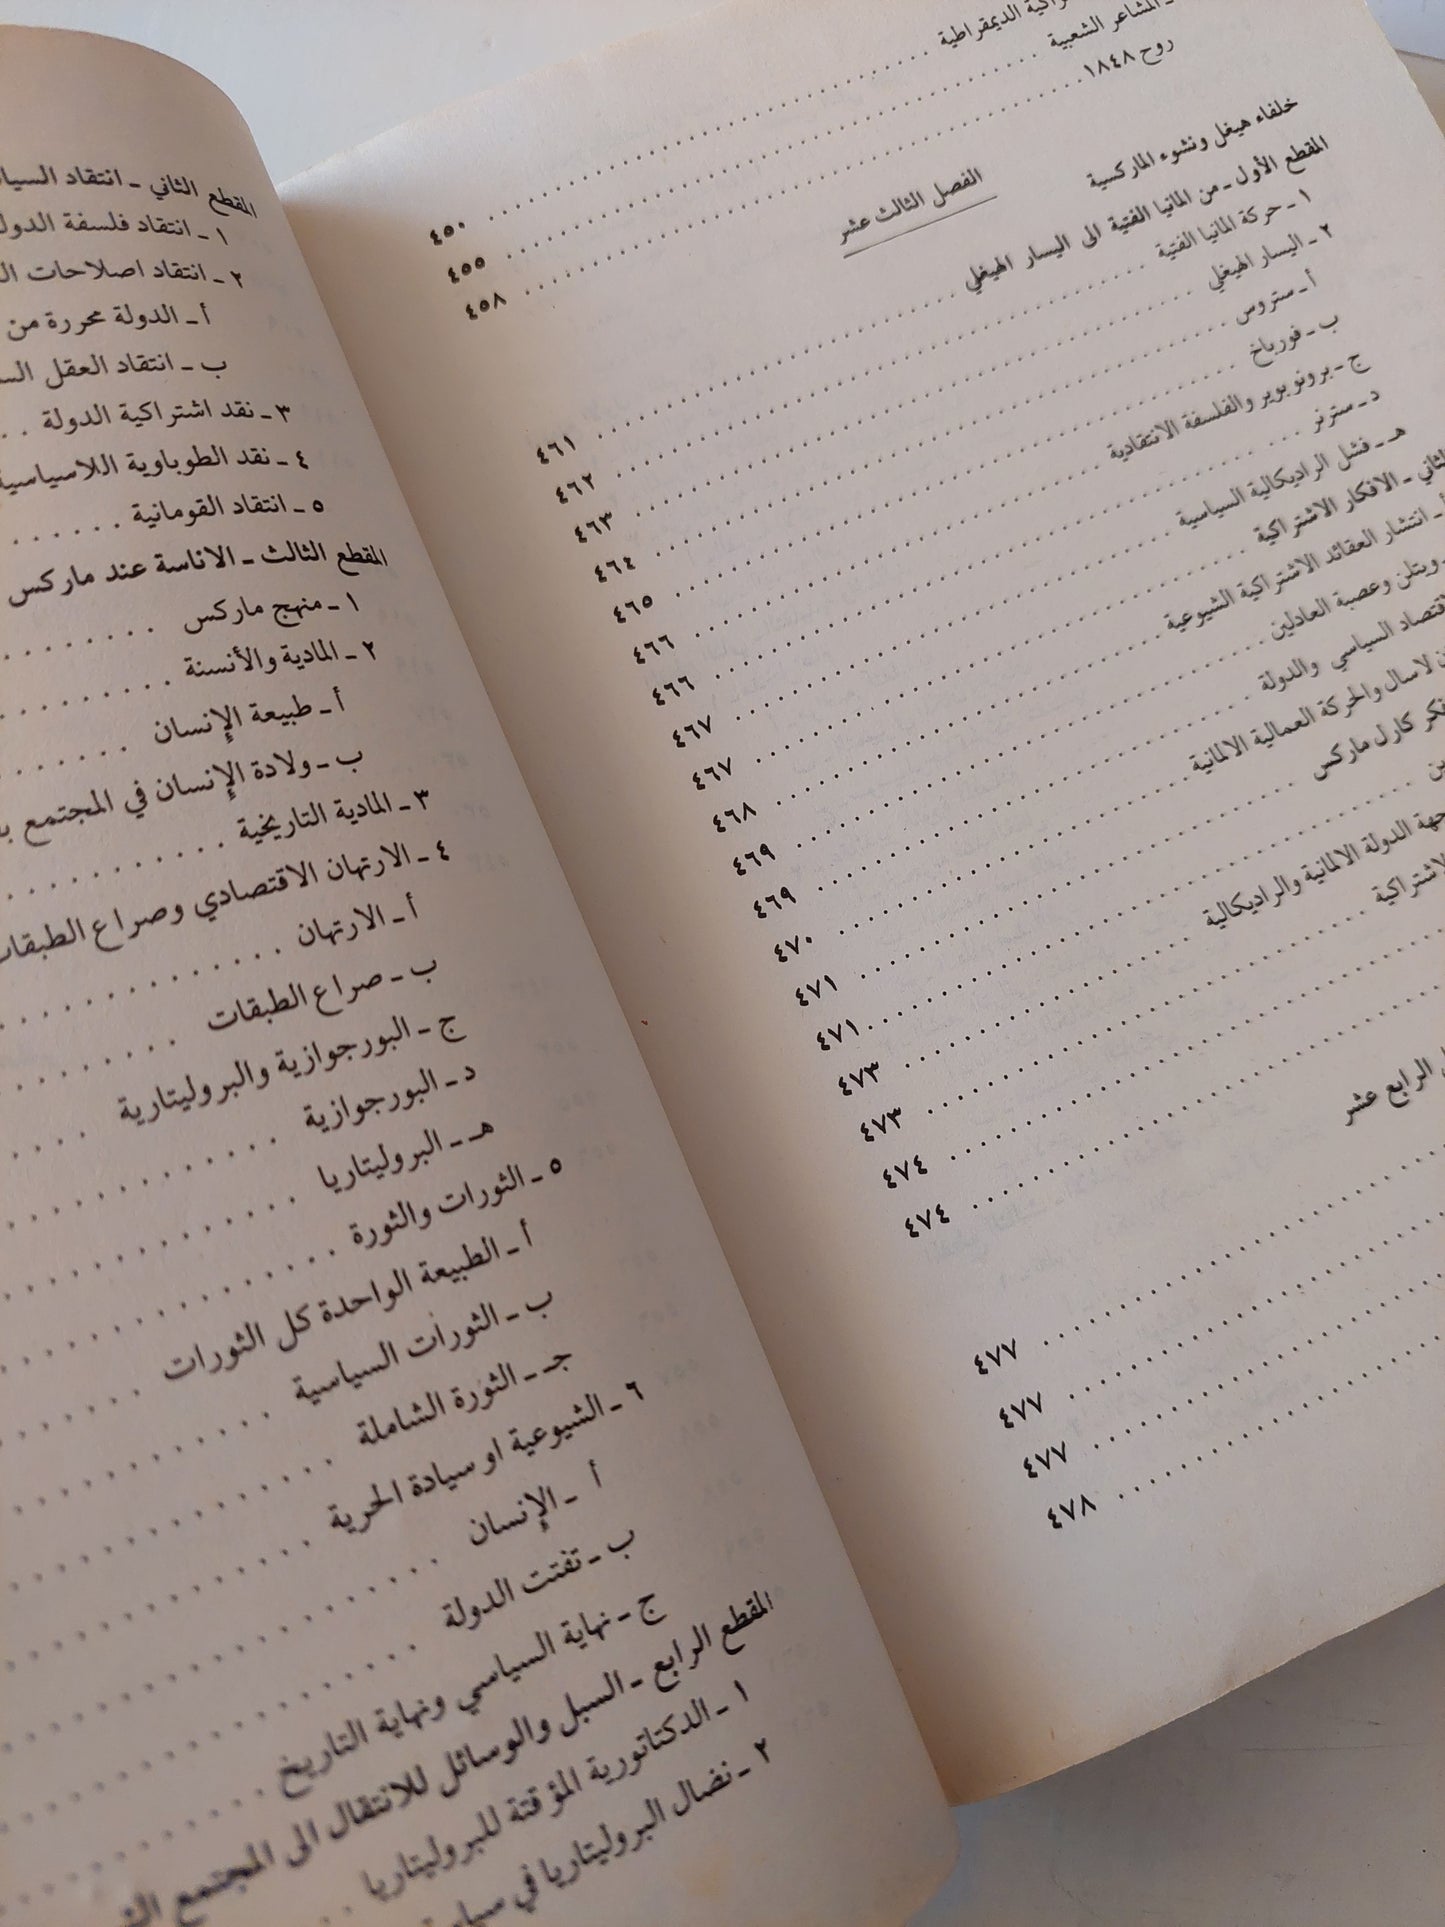 الديمقراطية . . . . . . . . . . ٤٥٠
ـ المشاعر الشعبية . . . . . . . . . . ٤٥٥
روح ١٨٤٨ . . . . . . . . . . ٤٥٨
الفصل الثالث عشر
خلفاء هيغل ونشوء الماركسية
المقطع الأول ـ من المانيا الفتية الى اليسار الهيغلي . . . . . . . . . . ٤٦١
١ ـ حركة المانيا الفتية . . . . . . . . . . ٤٦٢
٢ ـ اليسار الهيغلي . . . . . . . . . . ٤٦٣
أ ـ ستروس . . . . . . . . . . ٤٦٤
ب ـ فورباخ . . . . . . . . . . ٤٦٥
ج ـ برونو بوير والفلسفة الانتقادية . . . . . . . . . . ٤٦٦
د ـ سترنر . . . . . . . . . . ٤٦٦
هـ ـ فشل الراديكالية السياسية . . . . . . . . . . ٤٦٧
الثاني ـ الافكار الاشتراكية . . . . . . . . . . ٤٦٧
أ ـ انتشار العقائد الاشتراكية الشيوعية . . . . . . . . . . ٤٦٨
ويتلن وعصبة العادلين . . . . . . . . . . ٤٦٩
السياسي والدولة . . . . . . . . . . ٤٦٩
لاسال والحركة العمالية الالمانية . . . . . . . . . . ٤٧٠
كارل ماركس . . . . . . . . . . ٤٧١
. . . . . . . . . . ٤٧١
الدولة الالمانية والراديكالية . . . . . . . . . . ٤٧٣
. . . . . . . . . . ٤٧٣
. . . . . . . . . . ٤٧٤
. . . . . . . . . . ٤٧٤
الرابع عشر
. . . . . . . . . . ٤٧٧
. . . . . . . . . . ٤٧٧
. . . . . . . . . . ٤٧٧
. . . . . . . . . . ٤٧٨
المقطع الثاني ـ انتقاد
١ ـ انتقاد فلسفة
٢ ـ انتقاد اصلاحات
أ ـ الدولة محررة من
ب ـ انتقاد العقل
٣ ـ نقد اشتراكية الدولة . .
٤ ـ نقد الطوباوية
٥ ـ انتقاد القومانية . . . . . .
المقطع الثالث ـ الاناسة عند ماركس
١ ـ منهج ماركس . . . . . . . .
٢ ـ المادية والأنسنة . . . . . . . .
أ ـ طبيعة الإنسان . . . . . . .
ب ـ ولادة الإنسان في المجتمع
٣ ـ المادية التاريخية . . . . . . . . . .
٤ ـ الارتهان الاقتصادي وصراع الطبقات
أ ـ الارتهان . . . . . . . . . .
ب ـ صراع الطبقات . . . . . . . .
ج ـ البورجوازية والبروليتارية . . . .
د ـ البورجوازية . . . . . . . . . .
هـ ـ البروليتاريا . . . . . . . . . .
٥ ـ الثورات والثورة . . . . . . . . . .
أ ـ الطبيعة الواحدة كل الثورات . . . . . .
ب ـ الثورات السياسية . . . . . . . . . .
جـ ـ الثورة الشاملة . . . . . . . . . .
٦ ـ الشيوعية او سيادة الحرية . . . . . . . . . .
أ ـ الإنسان . . . . . . . . . .
ب ـ تفتت الدولة . . . . . . . . . .
ج ـ نهاية السياسي ونهاية التاريخ . . . . . . . . . .
المقطع الرابع ـ السبل والوسائل للانتقال الى المجتمع
١ ـ الدكتاتورية المؤقتة للبروليتاريا . . .
٢ ـ نضال البروليتاريا في